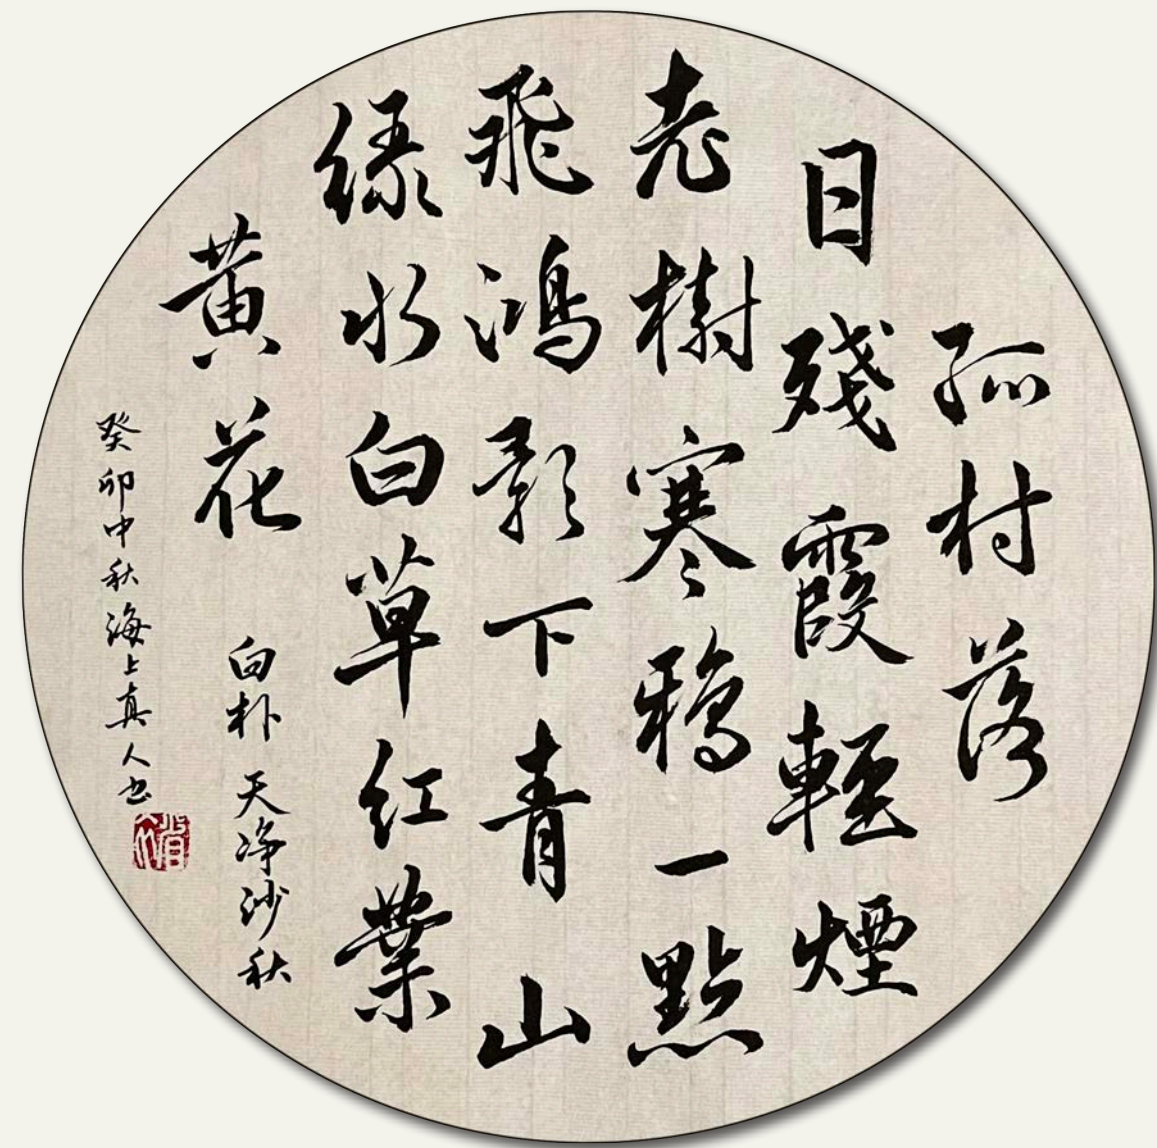 孤村落
日殘霞輕煙
老樹寒鴉一點
飛鴻影下青山
绿水白草红葉
黄花
白朴 天净沙秋
癸卯中秋海上真人书